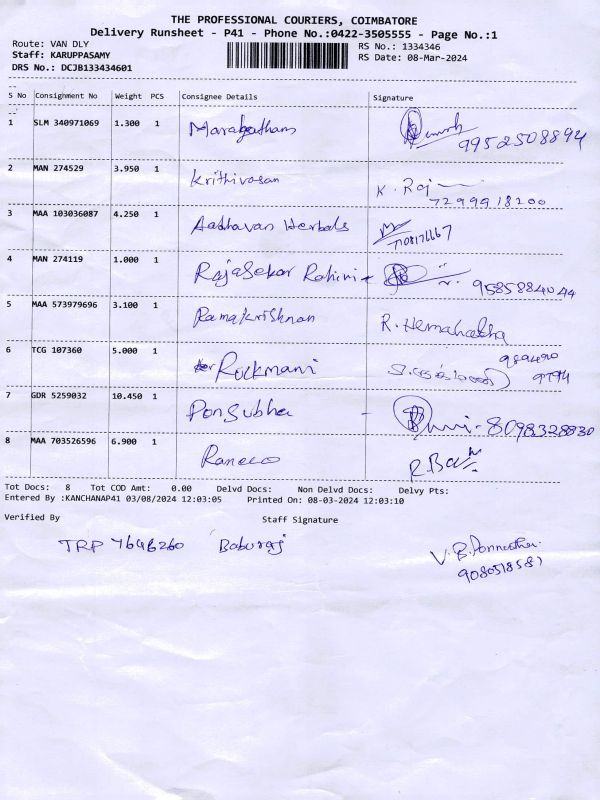 THE PROFESSIONAL COURIERS, COIMBATORE
Delivery Runsheet - P41 - Phone No.:0422-3505555 - Page No.:1
Route: VAN DLY
Staff: KARUPPASAMY
DRS No.: DCJB133434601
RS No.: 1334346
RS Date: 08-Mar-2024
S No Consignment No Weight PCS Consignee Details Signature
1 SLM 340971069 1.300 1 Maragatham 9952508894
2 MAN 274529 3.950 1 Krithivasan K. Raj 7299918200
3 MAA 103036087 4.250 1 Aabhavan Herbals
4 MAN 274119 1.000 1 RajaSekar Rohini 9585884044
5 MAA 573979696 3.100 1 Ramakrishnan R. Hemalatha
6 TCG 107360 5.000 1 Rukmani
7 GDR 5259032 10.450 1 Ponsubha - 8098328830
8 MAA 703526596 6.900 1 R.
Tot Docs: 8 Tot COD Amt: 0.00 Delvd Docs: Non Delvd Docs: Delvy Pts:
Entered By :KANCHANAP41 03/08/2024 12:03:05 Printed On: 08-03-2024 12:03:10
Verified By Staff Signature
TRP 7646260 Baburaj
V.B.
9080518581